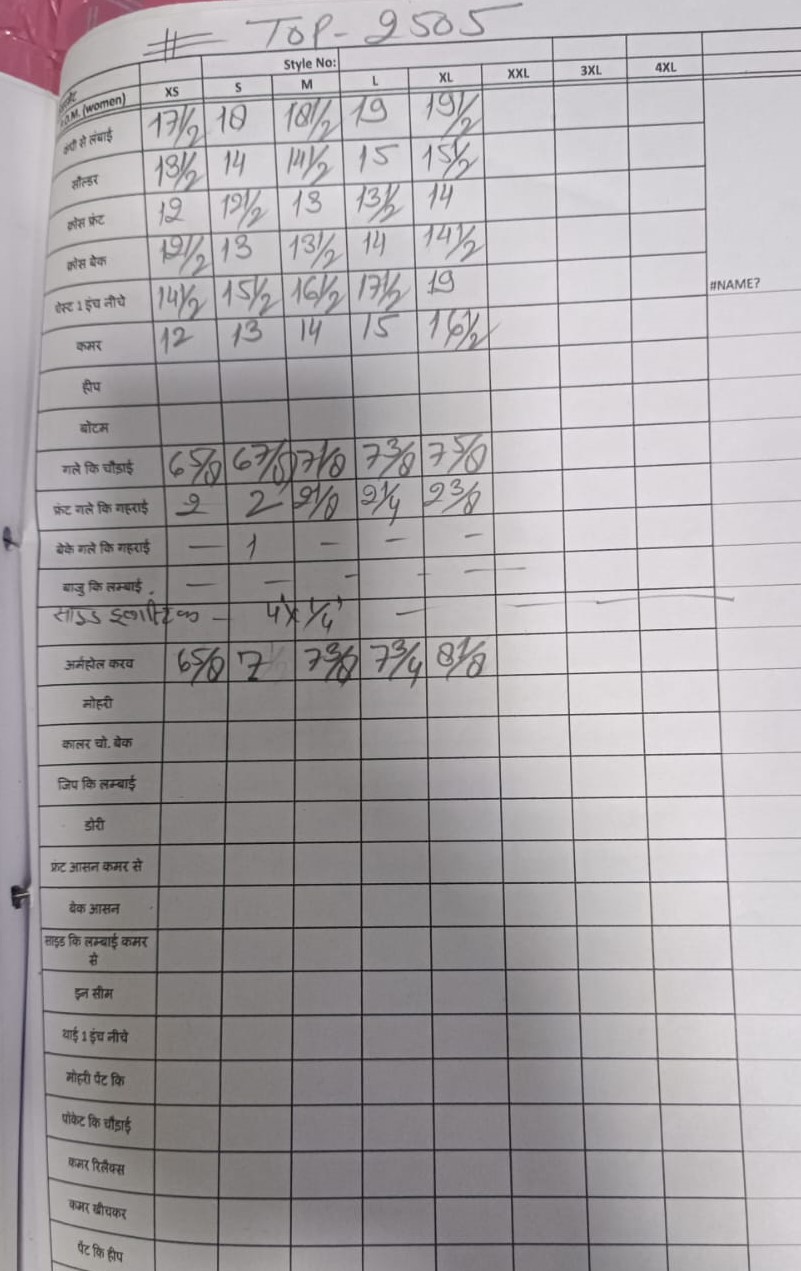 # TOP-2505
Style No:
P.O.M. (women) XS S M L XL XXL 3XL 4XL
कंधे से लंबाई 17 1/2 18 18 1/2 19 19 1/2
सौल्डर 13 1/2 14 14 1/2 15 15 1/2
क्रोस फ्रंट 12 12 1/2 13 13 1/2 14
क्रोस बेक 12 1/2 13 13 1/2 14 14 1/2
चेस्ट 1 इंच नीचे 14 1/2 15 1/2 16 1/2 17 1/2 19 #NAME?
कमर 12 13 14 15 16 1/2
हीप
बोटम
गले कि चौड़ाई 6 5/8 6 7/8 7 1/8 7 3/8 7 5/8
फ्रंट गले कि गहराई 2 2 2 1/8 2 1/4 2 3/8
बेके गले कि गहराई — 1 — — —
बाजु कि लम्बाई — — — — — —
साइड इलास्टिक — 4" X 1/4" —
अर्महोल करव 6 5/8 7 7 3/8 7 3/4 8 1/8
मोहरी
कालर चो. बेक
जिप कि लम्बाई
डोरी
फ्रंट आसन कमर से
बेक आसन
साइड कि लम्बाई कमर
से
इन सीम
थाई 1 इंच नीचे
मोहरी पेंट कि
पॉकेट कि चौड़ाई
कमर रिलैक्स
कमर खीचकर
पेंट कि हीप